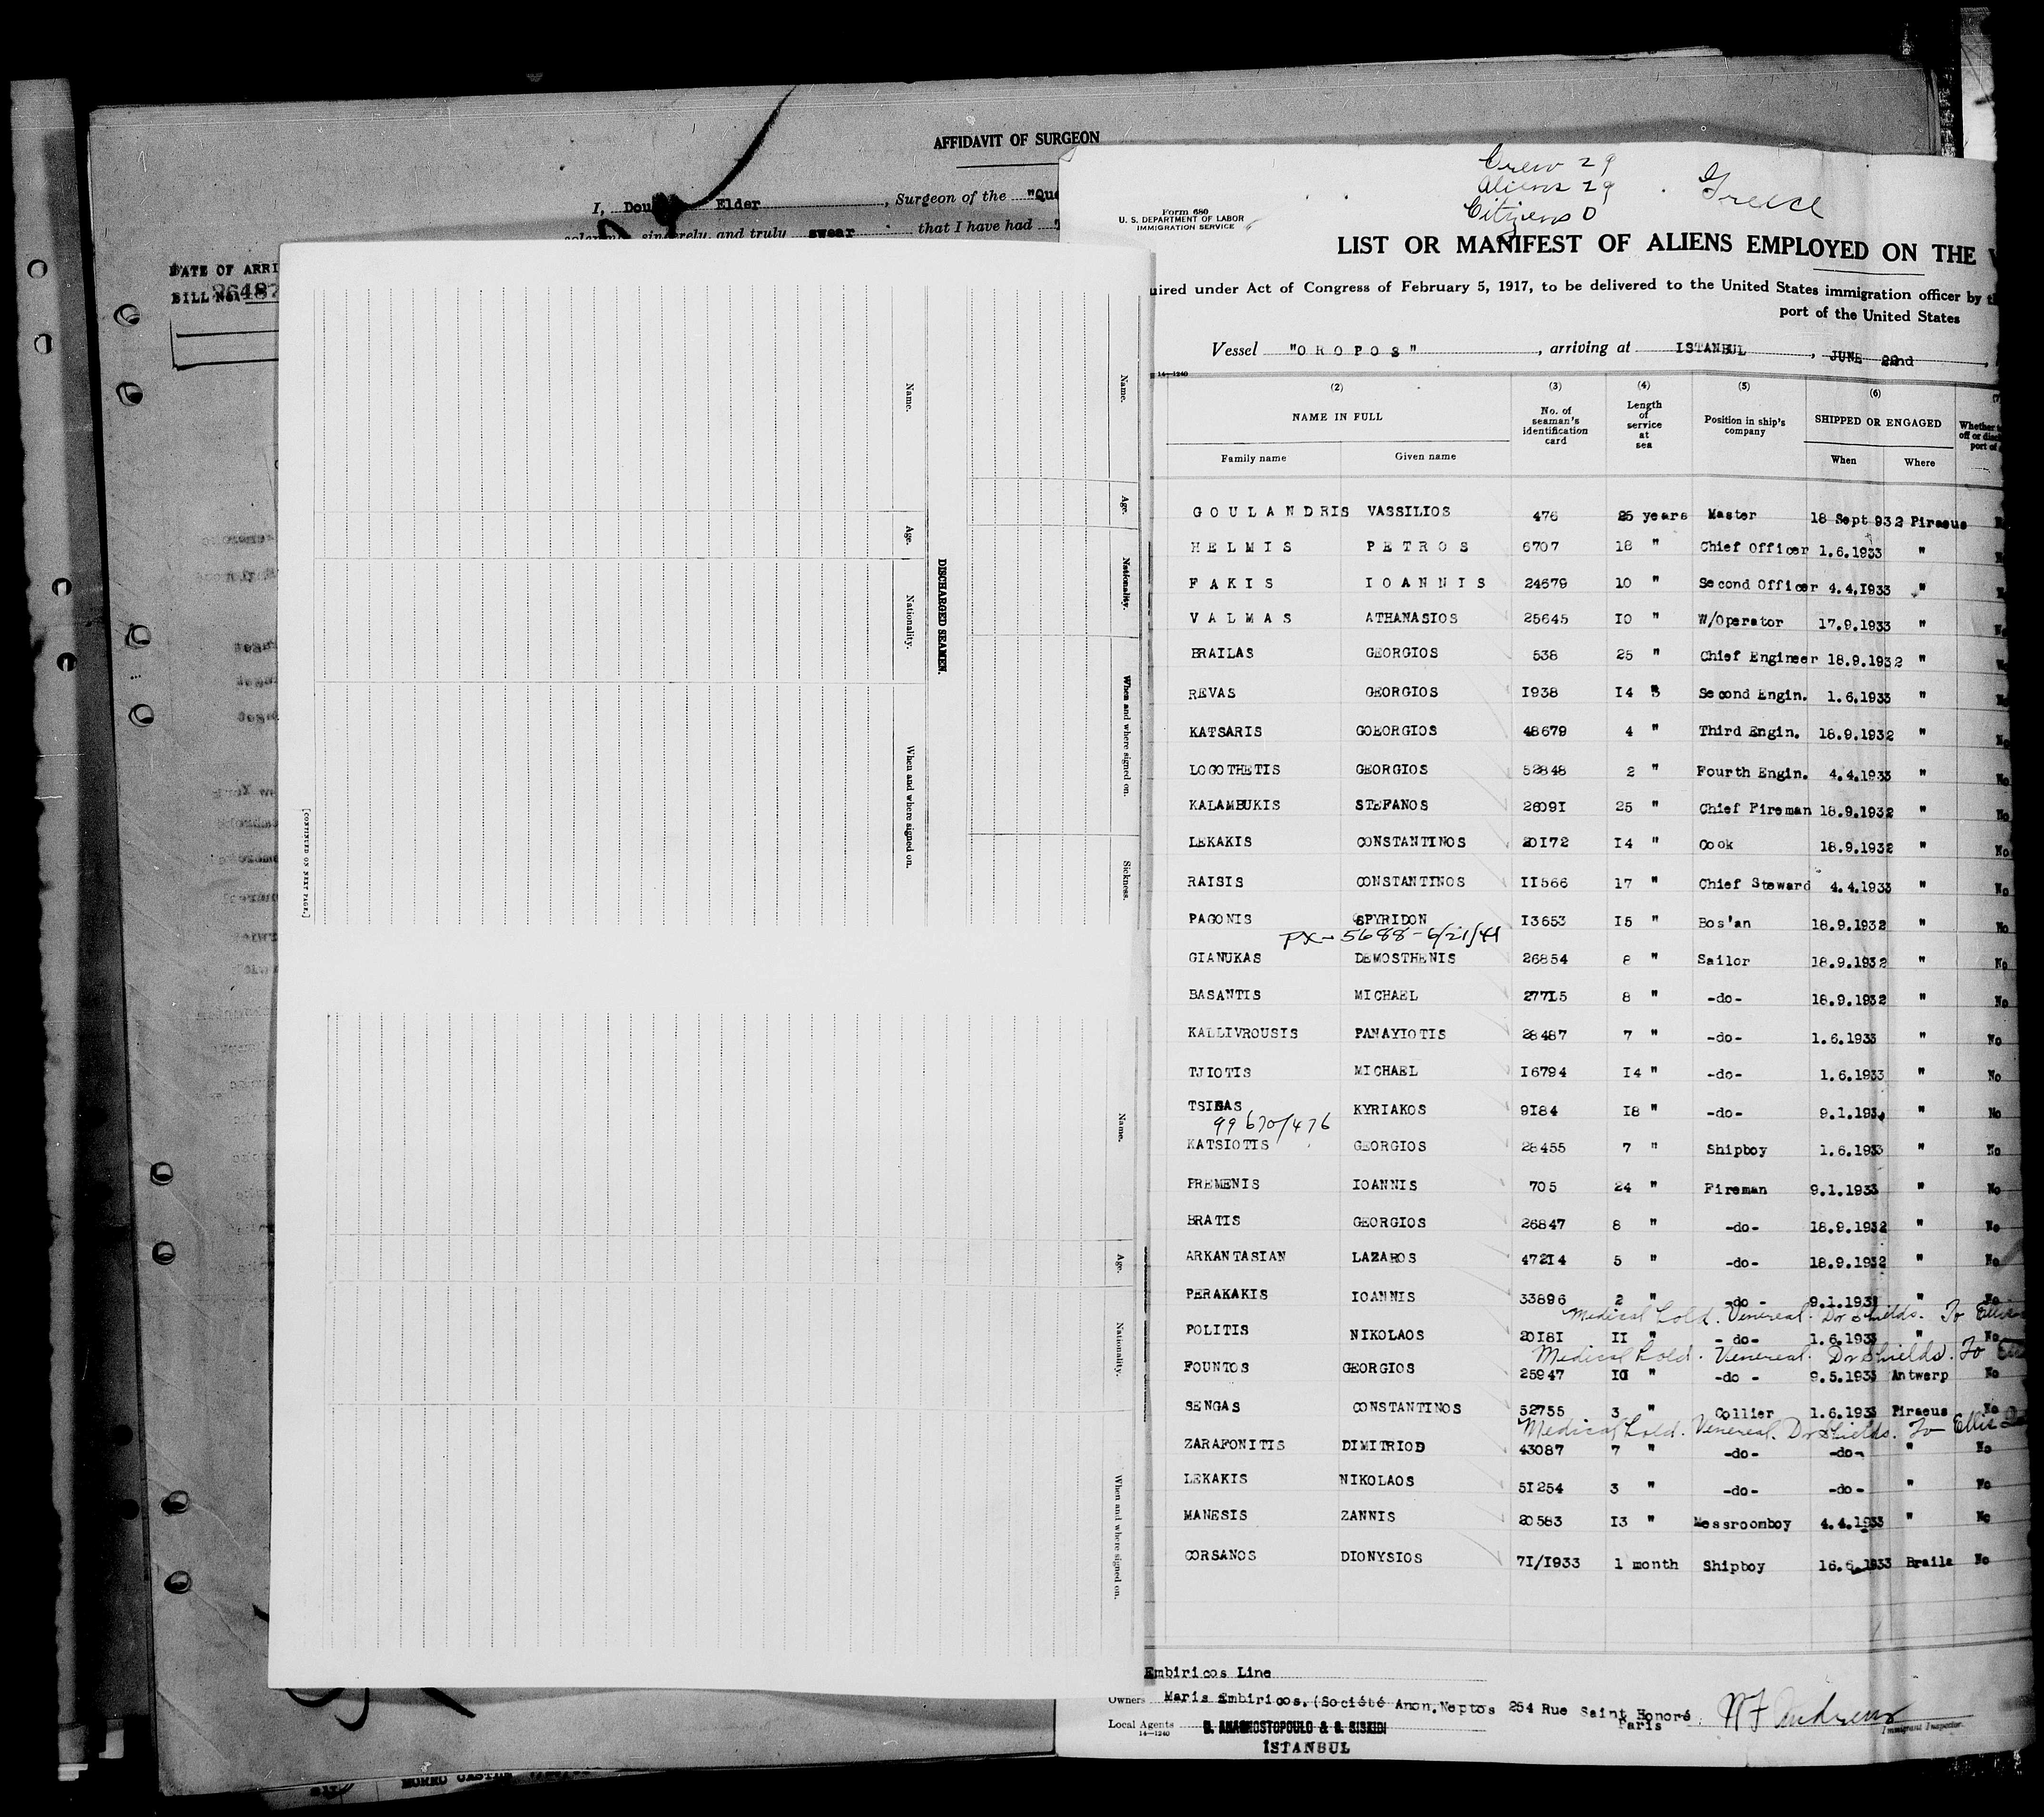 AFFIDAVIT OF SURGEON
I, Dou Elder, Surgeon of the "Que
sincerely, and truly swear that I have had
DATE OF ARRI
BILL No. 26487
Name.
Age.
Nationality.
When and where signed on.
Sickness.
DISCHARGED SEAMEN.
Name.
Age.
Nationality.
When and where signed on.
[CONTINUED ON NEXT PAGE.]
Name.
Age.
Nationality.
When and where signed on.
Crew 29
Aliens 29
Citizens 0
Greece
Form 680
U. S. DEPARTMENT OF LABOR
IMMIGRATION SERVICE
LIST OR MANIFEST OF ALIENS EMPLOYED ON THE V
uired under Act of Congress of February 5, 1917, to be delivered to the United States immigration officer by th
port of the United States
Vessel "OROPOS", arriving at ISTANBUL, JUNE 22nd,
14—1240
(2) (3) (4) (5) (6)
NAME IN FULL No. of seaman's identification card Length of service at sea Position in ship's company SHIPPED OR ENGAGED Whether
off or disch
port of
Family name Given name When Where
GOULANDRIS VASSILIOS 476 25 years Master 18 Sept 932 Piraeus
HELMIS PETROS 6707 18 " Chief Officer 1.6.1933 "
FAKIS IOANNIS 24679 10 " Second Officer 4.4.1933 "
VALMAS ATHANASIOS 25645 10 " W/Operator 17.9.1933 "
BRAILAS GEORGIOS 538 25 " Chief Engineer 18.9.1932 "
REVAS GEORGIOS 1938 14 " Second Engin. 1.6.1933 "
KATSARIS GOEORGIOS 48679 4 " Third Engin. 18.9.1932 " No
LOGOTHETIS GEORGIOS 52848 2 " Fourth Engin. 4.4.1933 " No
KALAMBUKIS STEFANOS 26091 25 " Chief Fireman 18.9.1932 " No
LEKAKIS CONSTANTINOS 20172 14 " Cook 18.9.1932 " No
RAISIS CONSTANTINOS 11566 17 " Chief Steward 4.4.1933 " No
PAGONIS SPYRIDON 13653 15 " Bos'an 18.9.1932 " No
PX-5688-6/21/41
GIANUKAS DEMOSTHENIS 26854 8 " Sailor 18.9.1932 " No
BASANTIS MICHAEL 27715 8 " -do- 18.9.1932 " No
KALLIVROUSIS PANAYIOTIS 28487 7 " -do- 1.6.1933 " No
TJIOTIS MICHAEL 16794 14 " -do- 1.6.1933 " No
TSIBAS KYRIAKOS 9184 18 " -do- 9.1.193 " No
99670/476
KATSIOTIS GEORGIOS 28455 7 " Shipboy 1.6.1933 " No
PREMENIS IOANNIS 705 24 " Fireman 9.1.1933 " No
BRATIS GEORGIOS 26847 8 " -do- 18.9.1932 " No
ARKANTASIAN LAZAROS 47214 5 " -do- 18.9.1932 " No
PERAKAKIS IOANNIS 33896 2 " -do - 9.1.1933 " No
Medical hold. Venereal. Dr Shields. To Ellis
POLITIS NIKOLAOS 20181 11 " - do- 1.6.1933 " No
Medical hold. Venereal. Dr Shields. To
FOUNTOS GEORGIOS 25947 10 " -do - 9.5.1933 Antwerp No
SENGAS CONSTANTINOS 52755 3 " Collier 1.6.1933 Piraeus No
Medical hold. Venereal. Dr Shields. To Ellis
ZARAFONITIS DIMITRIOD 43087 7 " -do- -do- " No
LEKAKIS NIKOLAOS 51254 3 " -do- -do- " No
MANESIS ZANNIS 20583 13 " Messroomboy 4.4.1933 " No
CORSANOS DIONYSIOS 71/1933 1 month Shipboy 16.6.1933 Braila No
Embiricos Line
Owners Maris Embiricos.(Société Anon.Neptos 254 Rue Saint Honoré
Paris
Local Agents D. ANAGNOSTOPOULO & S. SISKIDI
14—1240
İSTANBUL
Immigrant Inspector.